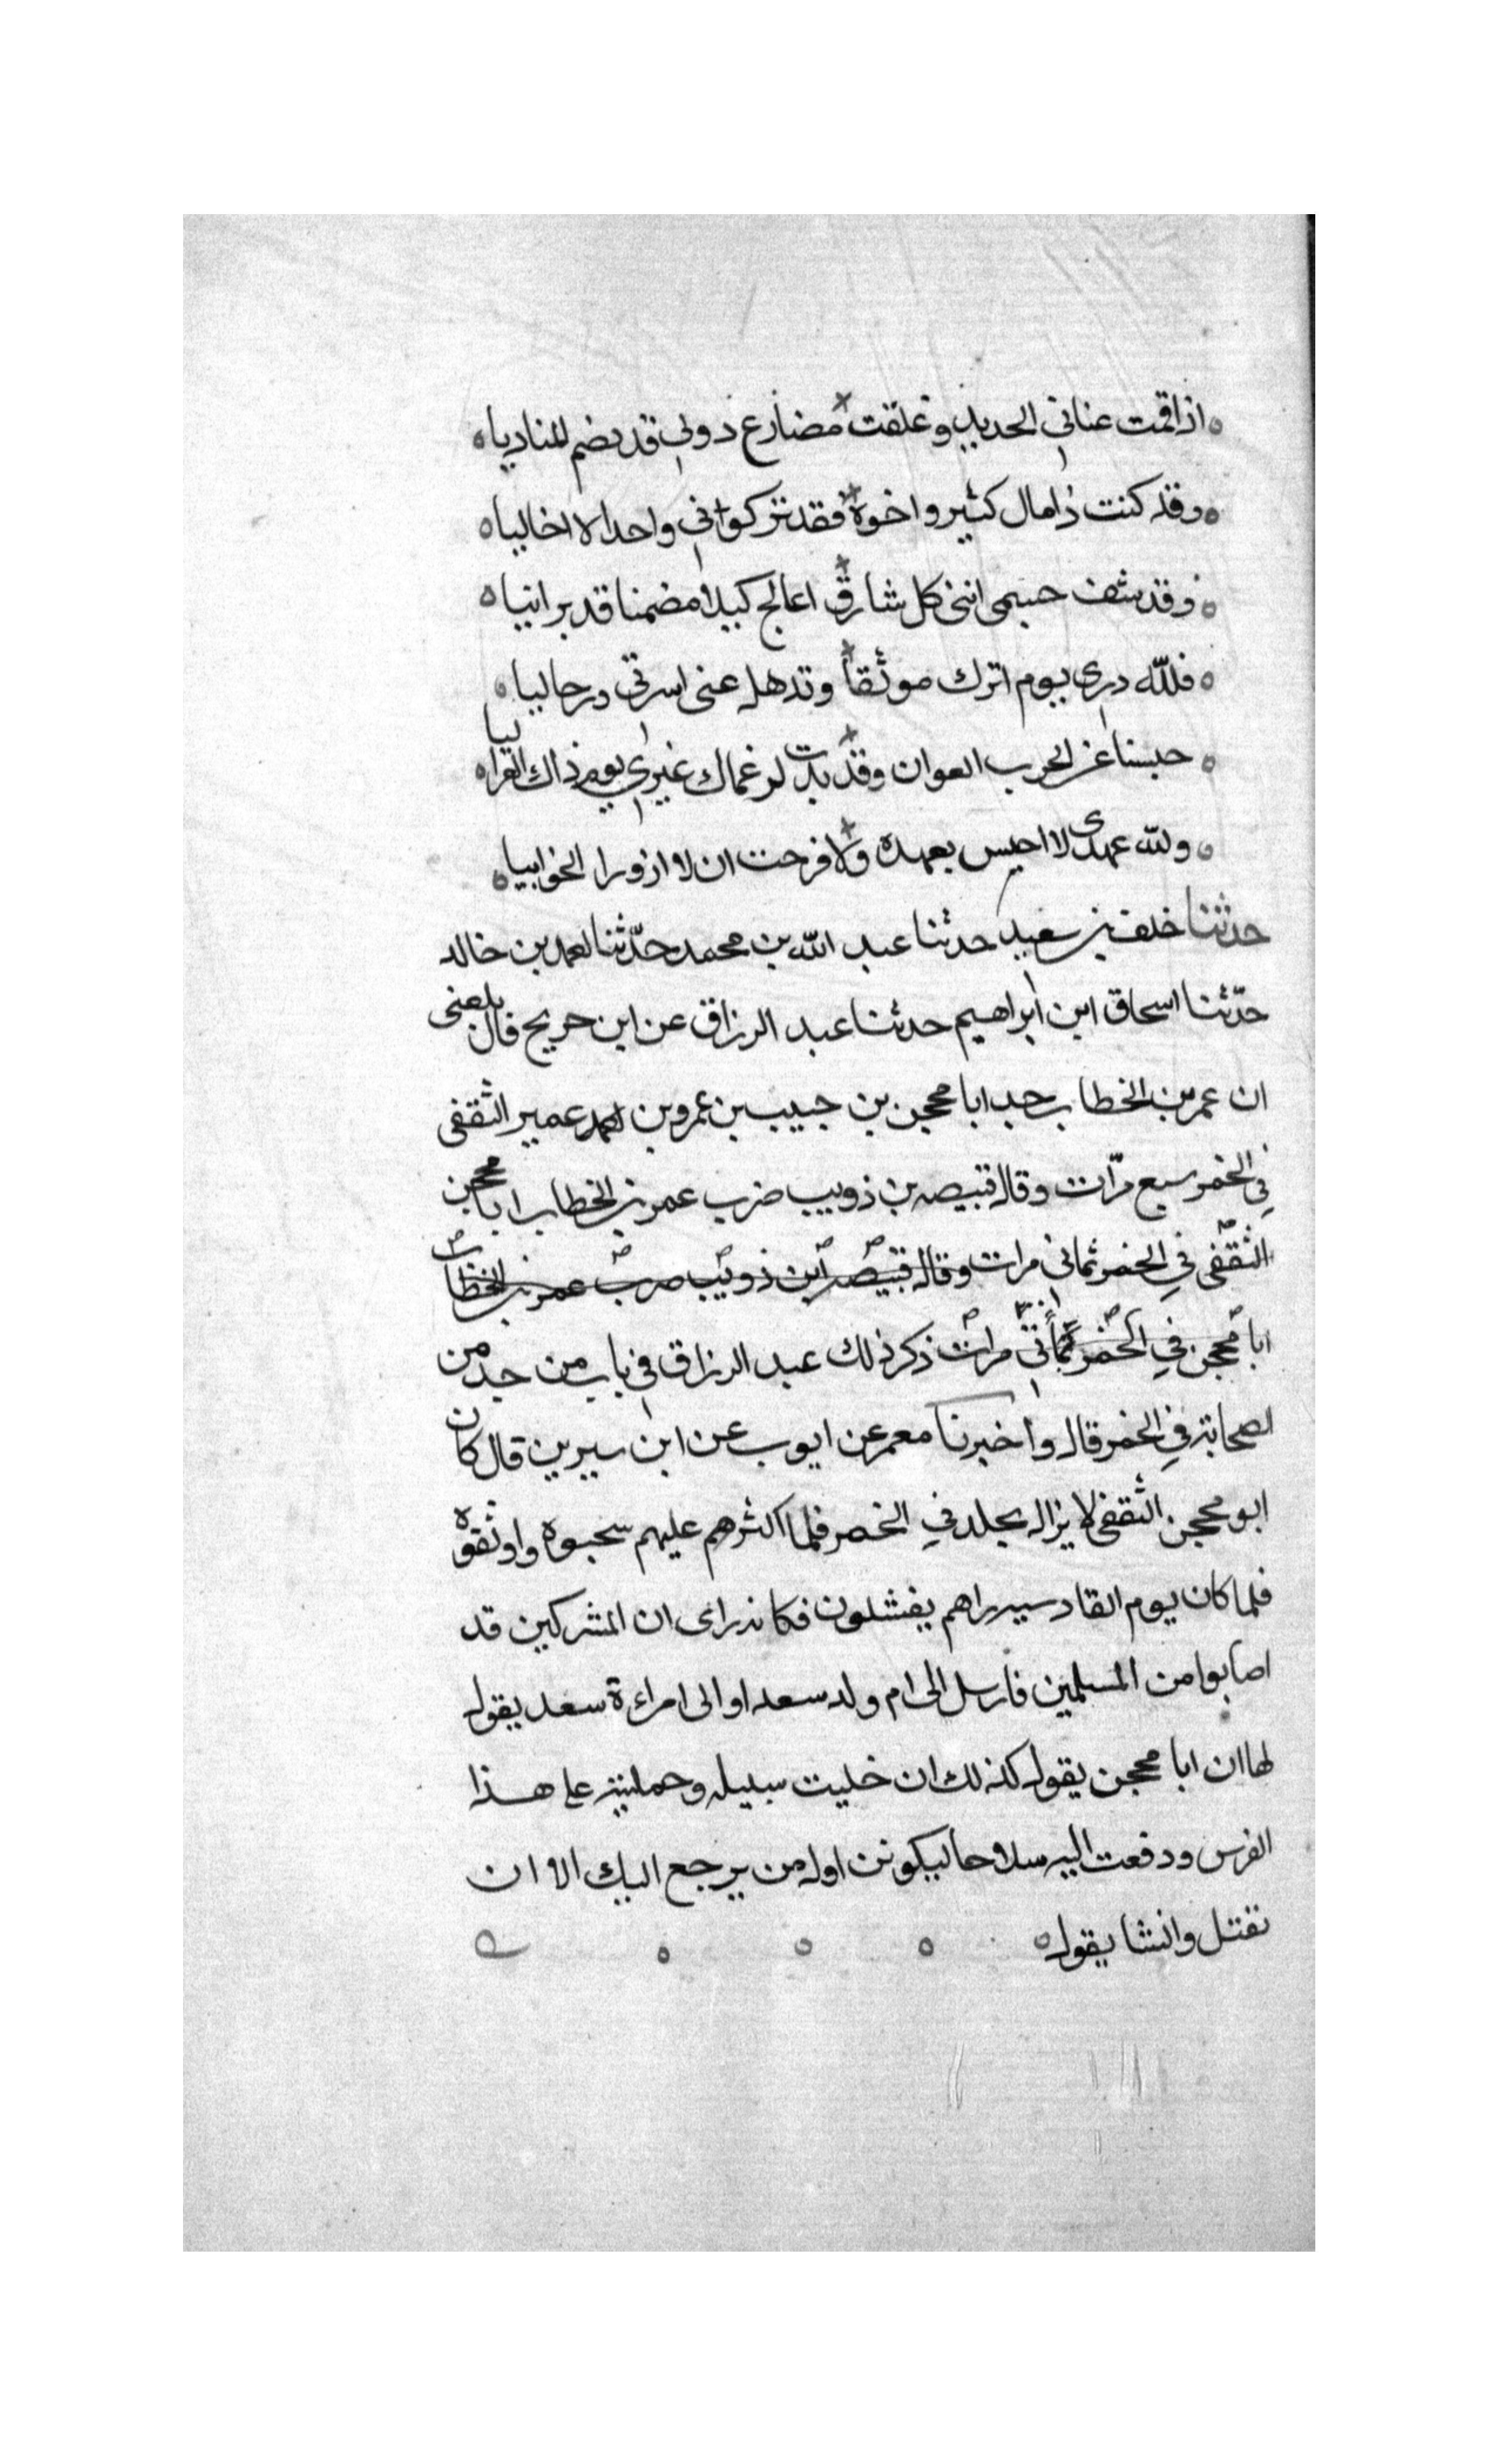 اذا قمت عناني الحديد وغلقت مضارع دوني قد تضم المناديا
وقد كنت ذا مال كثير واخوة فقد تركواني واحدا لا اخاليا
وقد شف جسمي انني كل شارق اعالج كبلا مضمنا قد برانيا
فلله دري يوم اترك موثقا وتدهل عنى اسرتي ورجاليا
حبسنا عن الحرب العوان وقد بدت لرغماك غيري يوم ذاك القراليا
ولله عهدى لا احبس بعهده ولا فرحت ان لا ازورا الخوابيا
حدثنا خلف بن سعيد حدثنا عبد الله بن محمد حدّثنا احمد بن خالد
حدّثنا اسحاق ابن ابراهيم حدثنا عبد الرزاق عن ابن جريح قال بلعنى
ان عمر بن الخطاب حد ابا محجن بن حبيب بن عمرو بن عمير الثقفى
في الخمر سبع مرّات وقال قبيصه بن ذويب ضرب عمر بن الخطاب ابا محجن
الثقفى في الخمر ثماني مرات وقال قبيصه ابن ذويب ضرب عمر بن الخطاب
ابا محجن في الخمر ثماني مرات ذكر ذلك عبد الرزاق في باب من حد من
الصحابة في الخمر قال واخبرنا معمر عن ايوب عن ابن سيرين قال كان
ابو محجن الثقفى لا يزال يجلد في الخمر فلما اكثرهم عليهم سجنوه واوثقوه
فلما كان يوم القادسيه راهم يفتشلون فكانه راى ان المشركين قد
اصابوا من المسلمين فارسل الى ام ولد سعد او الى امراءة سعد يقول
لها ان ابا محجن يقول كذلك ان خليت سبيله وحملتيه على هذا
الفرس ودفعت اليه سلاحا ليكونن اول من يرجع اليك الا ان
تقتل وانشا يقول